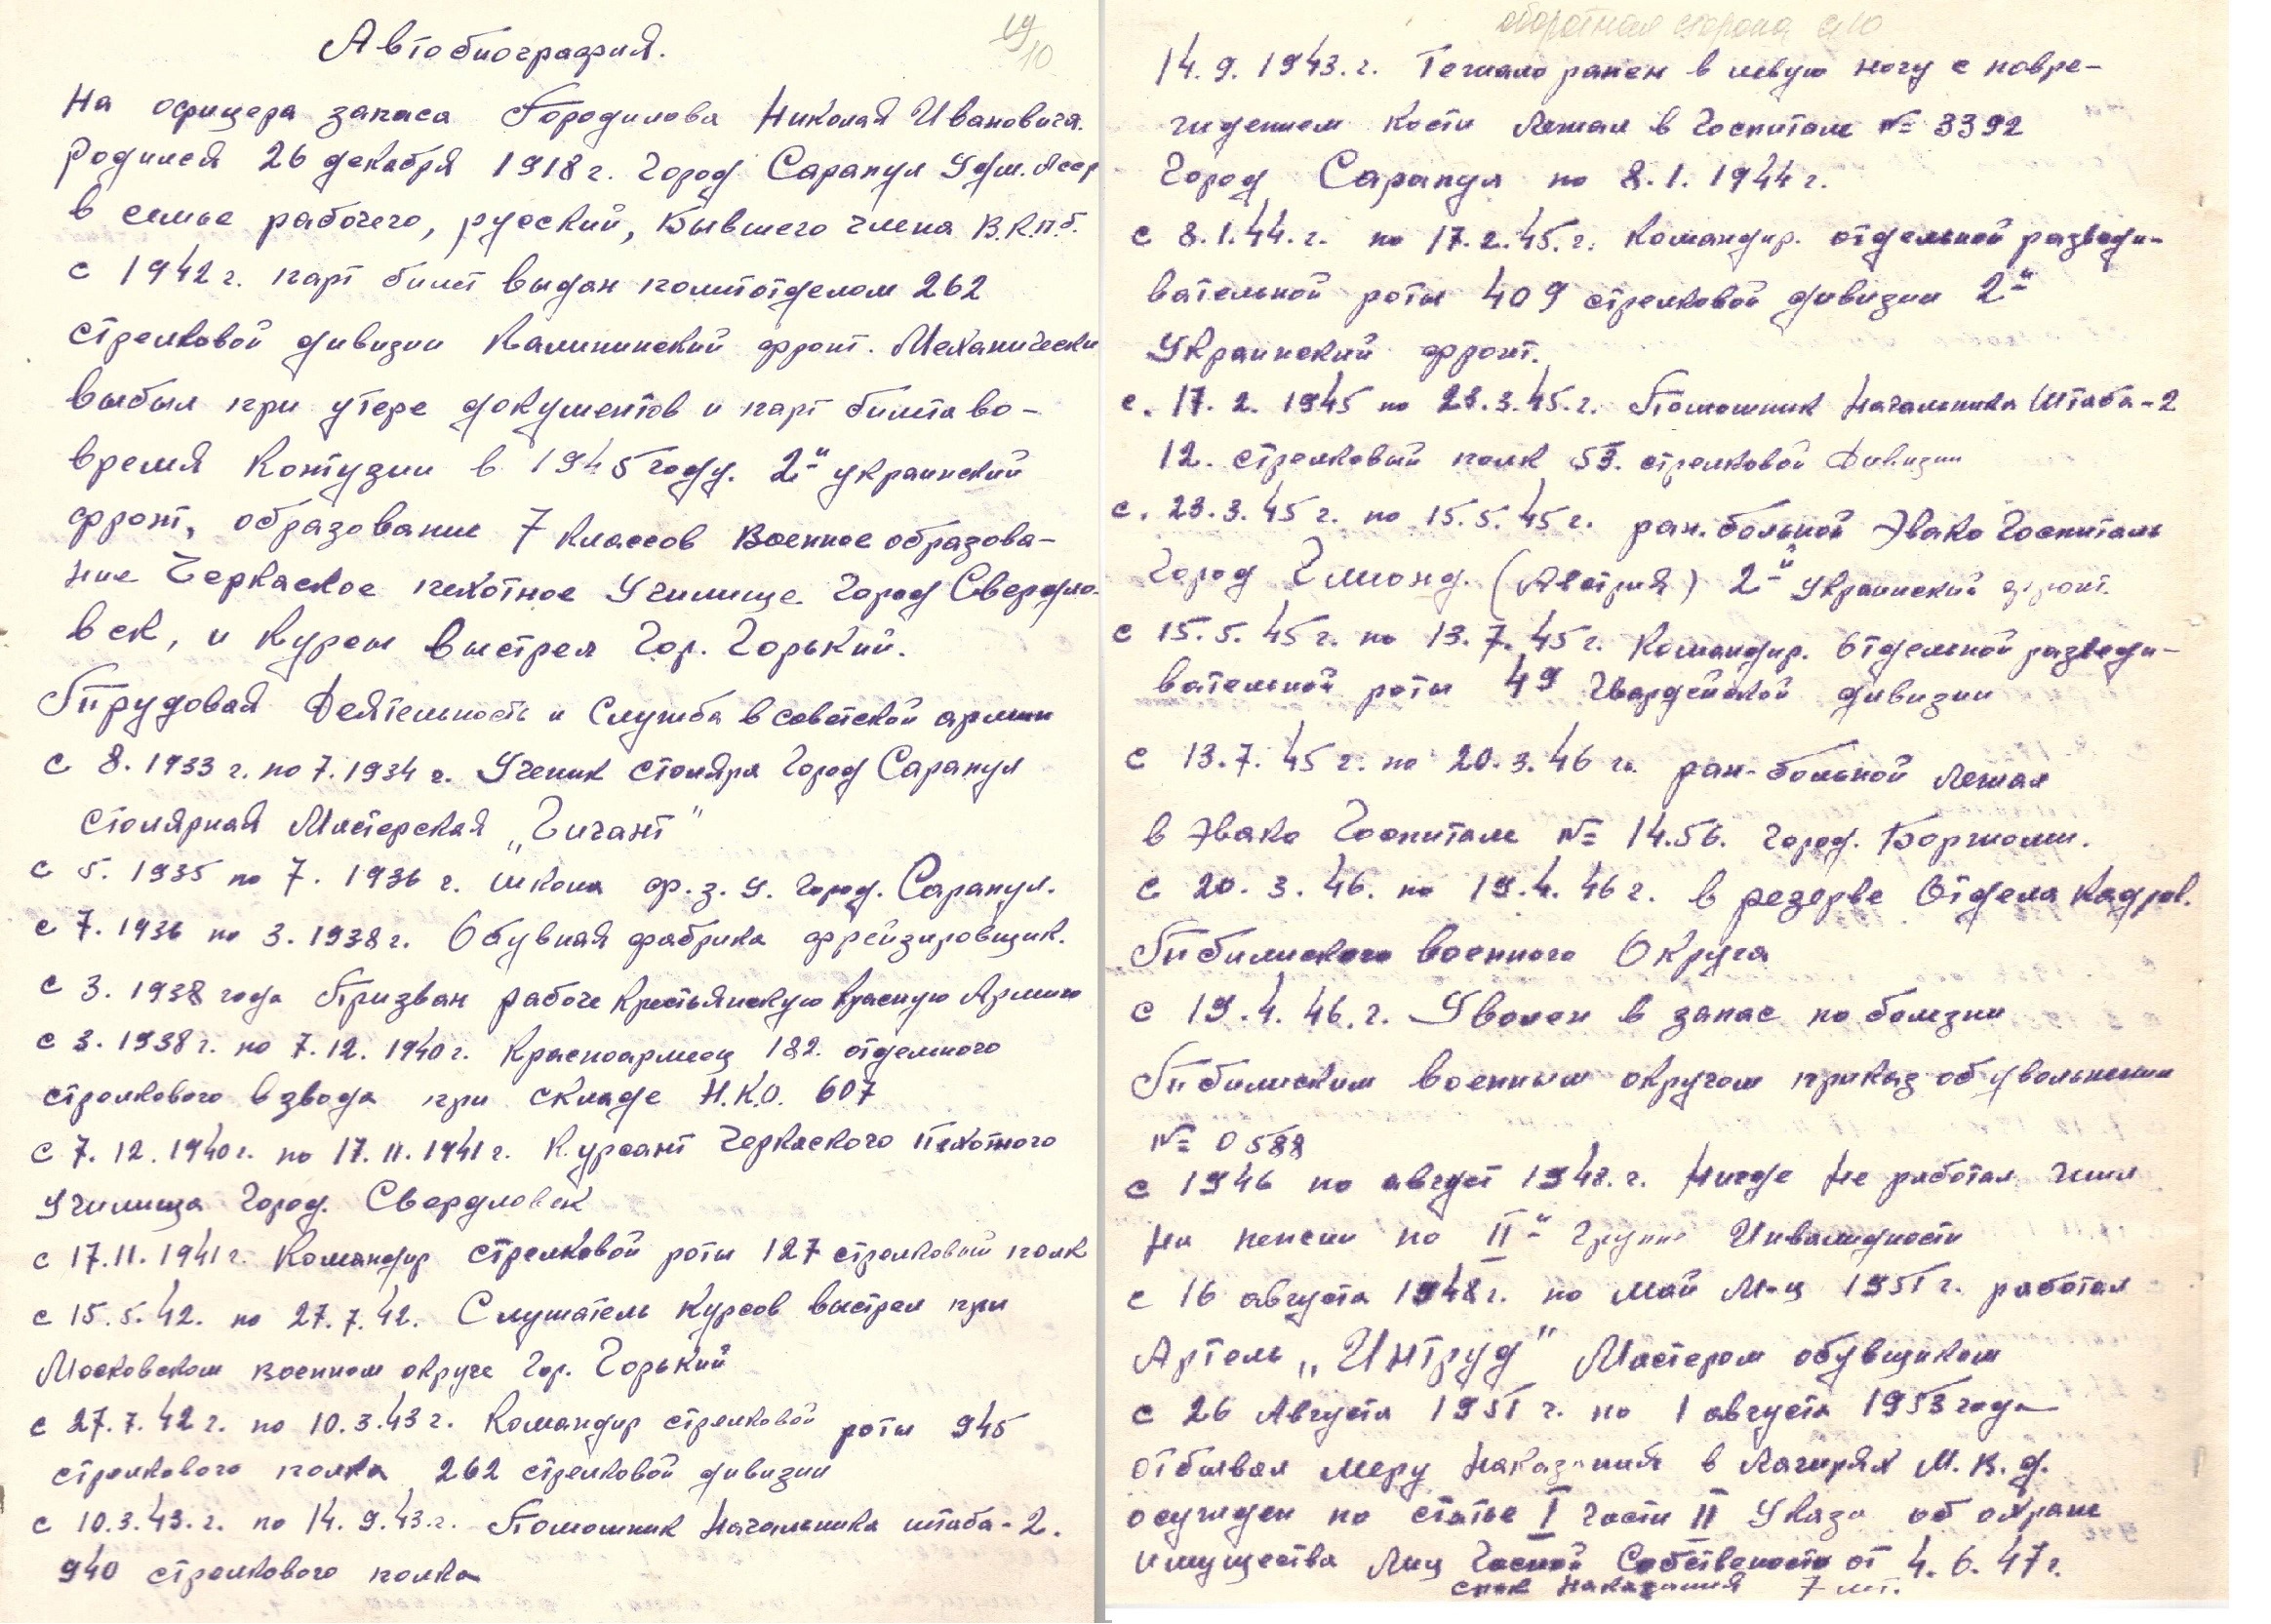 19
10
Автобиография.
На офицера запаса Городилова Николая Ивановича.
Родился 26 декабря 1918 г. Город Сарапул Удм. Асср
в семье рабочего, русский, Бывшего члена В.К.П.б.
с 1942 г. парт билет выдан политотделом 262
стрелковой дивизии Калининский фронт. Механически
выбыл при утере документов и парт билета во-
время Контузии в 1945 году. 2-й украинский
фронт, образование 7 классов Военное образова-
ние Черкаское пехотное Училище Город Свердло-
вск, и Курсы выстрел Гор. Горький.
Трудовая Деятельность и Служба в советской армии
с 8. 1933 г. по 7. 1934 г. Ученик столяра Город Сарапул
столярная Мастерская „Гигант"
с 5. 1935 по 7. 1936 г. школа ф. з. у. Город. Сарапул.
с 7. 1936 по 3. 1938 г. Обувная фабрика фрейзировщик.
с 3. 1938 года Призван рабоче Крестьянскую Красную Армию
с 3. 1938 г. по 7. 12. 1940 г. Красноармеец 182. отдельного
стрелкового взвода при складе Н.К.О. 607
с 7. 12. 1940 г. по 17. 11. 1941 г. Курсант Черкаского Пехотного
Училища Город. Свердловск
с 17. 11. 1941 г. Командир стрелковой роты 127 стрелковый полк
с 15. 5. 42. по 27. 7. 42. Слушатель Курсов выстрел при
Московском военном округе Гор. Горький
с 27. 7. 42 г. по 10. 3. 43 г. Командир стрелковой роты 945
стрелкового полка 262 стрелковой дивизии
с 10. 3. 43. г. по 14. 9. 43. г. Помошник Начальника штаба-2.
940 стрелкового полка
оборотная сторона с10
14. 9. 1943. г. Тежало ранен в левую ногу с повре-
ждением кости Лежал в Госпитале № 3392
Город Сарапул по 8. 1. 1944 г.
с 8. 1. 44. г. по 17. 2. 45. г. Командир. отдельной разведи-
вательной роты 409 стрелковой дивизии 2-й
Украинский фронт.
с. 17. 2. 1945 по 23. 3. 45. г. Помошник Начальника Штаба-2
12. стрелковый полк 53. стрелковой Дивизии
с. 23. 3. 45 г. по 15. 5. 45 г. ран. больной Эвако Госпиталь
Город Гмюнд. (Австрия) 2-й Украинский фронт.
с 15. 5. 45 г. по 13. 7. 45 г. Командир. Отдельной разведи-
вательной роты 49 Гвардейской дивизии
с 13. 7. 45 г. по 20. 3. 46 г. ран-больной Лежал
в Эвако Госпитале № 14.56. Город. Боржоми.
с 20. 3. 46. по 19. 4. 46 г. в резерве Отдела Кадров.
Тбилиского Военного Округа
с 19. 4. 46. г. Уволен в запас по болезни
Тбилиским Военным округом приказ об увольнении
№ 0588
с 1946 по август 1948. г. Нигде Не работал жил
на пенсии по II-й Группе Инвалидности
с 16 августа 1948 г. по май М-ц 1951 г. работал
Артель „Интруд" Мастером обувщиком
с 26 Августа 1951 г. по 1 августа 1953 года
отбывал меру Наказания в Лагирях М. В. Д.
осужден по статье I части II Указа об охране
имущества Лиц Часной Собствености от 4. 6. 47 г.
срок наказания 7 лет.